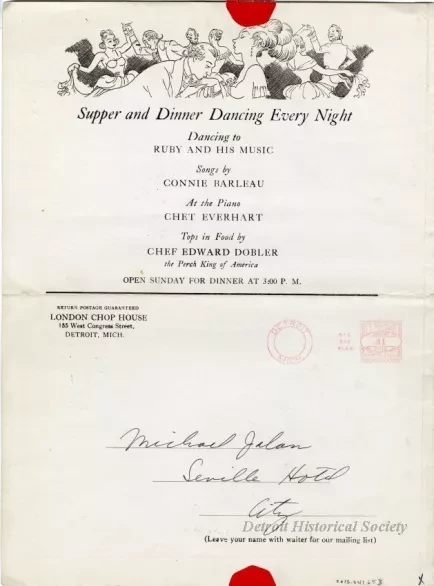 Supper and Dinner Dancing Every Night
Dancing to
RUBY AND HIS MUSIC
Songs by
CONNIE BARLEAU
At the Piano
CHET EVERHART
Tops in Food by
CHEF EDWARD DOBLER
the Perch King of America
OPEN SUNDAY FOR DINNER AT 3:00 P. M.
RETURN POSTAGE GUARANTEED
LONDON CHOP HOUSE
155 West Congress Street,
DETROIT, MICH.
DETROIT
MICH.
Michael Jalan
Seville Hotel
City
Detroit Historical Society
(Leave your name with waiter for our mailing list)